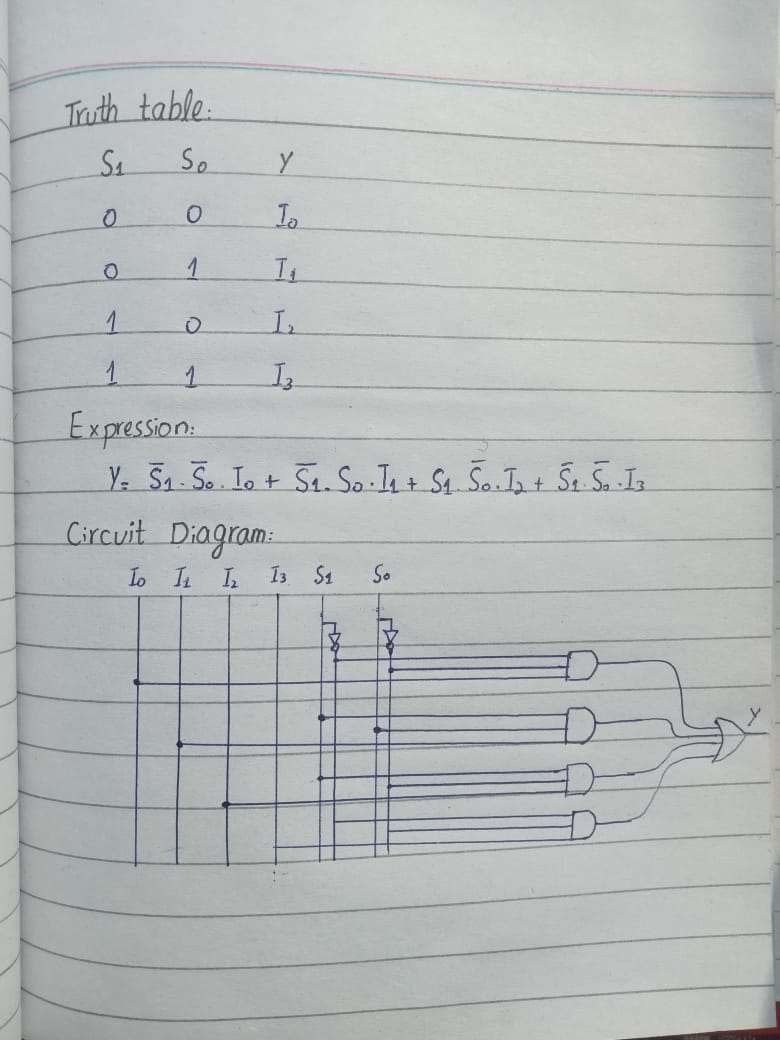 Truth table:
S₁ S₀ Y
0 0 I₀
0 1 I₁
1 0 I₂
1 1 I₃
Expression:
Y= S̅₁.S̅₀.I₀ + S̅₁.S₀.I₁ + S₁.S̅₀.I₂ + S̅₁.S̅₀.I₃
Circuit Diagram:
I₀ I₁ I₂ I₃ S₁ S₀
Y